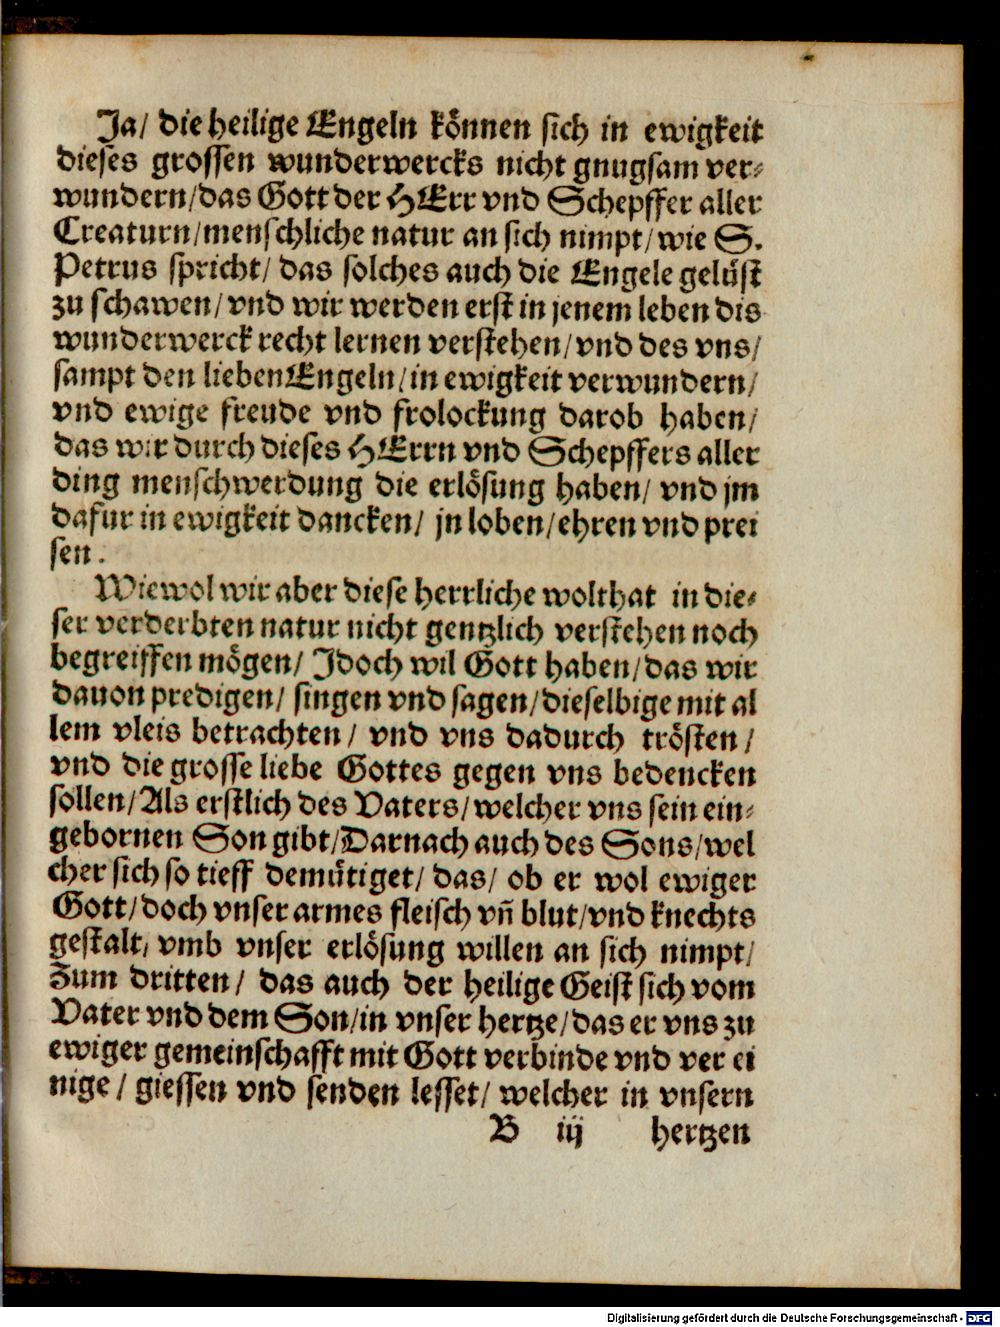 Ja/ die heilige Engeln können sich in ewigkeit
dieses grossen wunderwercks nicht gnugsam ver-
wundern/das Gott der HErr vnd Schepffer aller
Creaturn/menschliche natur an sich nimpt/wie S.
Petrus spricht/ das solches auch die Engele gelüst
zu schawen/vnd wir werden erst in jenem leben dis
wunderwerck recht lernen verstehen/vnd des vns/
sampt den lieben Engeln/in ewigkeit verwundern/
vnd ewige freude vnd frolockung darob haben/
das wir durch dieses HErrn vnd Schepffers aller
ding menschwerdung die erlösung haben/ vnd jm
dafur in ewigkeit dancken/ jn loben/ehren vnd prei
sen.
Wiewol wir aber diese herrliche wolthat in die-
ser verderbten natur nicht gentzlich verstehen noch
begreiffen mögen/ Jdoch wil Gott haben/das wir
dauon predigen/ singen vnd sagen/dieselbige mit al
lem vleis betrachten/ vnd vns dadurch trösten/
vnd die grosse liebe Gottes gegen vns bedencken
sollen/Als erstlich des Vaters/welcher vns sein ein-
gebornen Son gibt/Darnach auch des Sons/wel
cher sich so tieff demütiget/ das/ ob er wol ewiger
Gott/doch vnser armes fleisch vñ blut/vnd knechts
gestalt/ vmb vnser erlösung willen an sich nimpt/
Zum dritten/ das auch der heilige Geist sich vom
Vater vnd dem Son/in vnser hertze/das er vns zu
ewiger gemeinschafft mit Gott verbinde vnd ver ei
nige/ giessen vnd senden lesset/ welcher in vnsern
B iij hertzen
Digitalisierung gefördert durch die Deutsche Forschungsgemeinschaft - DFG